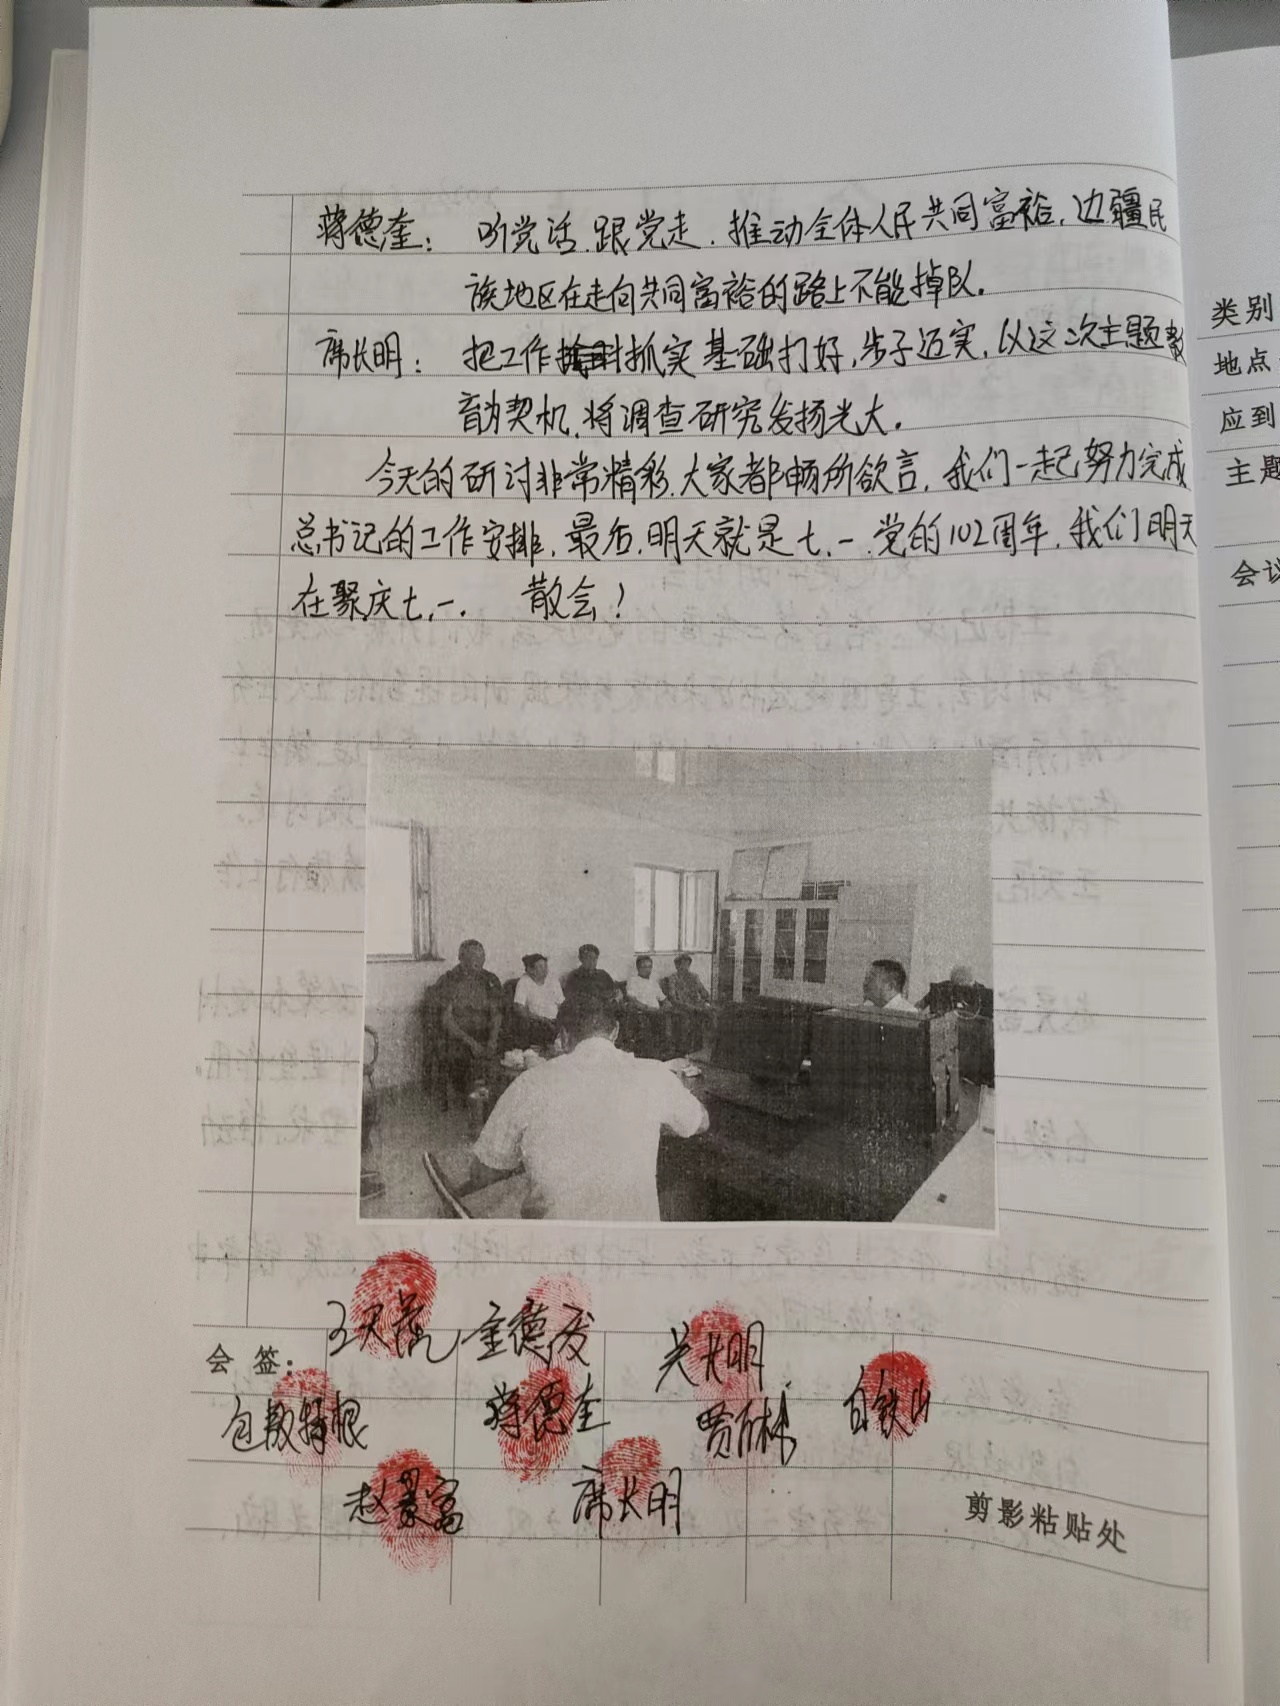 蒋德奎： 听党话.跟党走.推动全体人民共同富裕.边疆民
族地区在走向共同富裕的路上不能掉队.
席长明： 把工作抓实 基础打好,步子迈实.以这次主题教
育为契机.将调查研究发扬光大.
今天的研讨非常精彩.大家都畅所欲言.我们一起努力完成
总书记的工作安排.最后.明天就是七.一.党的102周年.我们明天
在聚庆七.一. 散会！
会 签：
王天
金德
关长明
包敖特根
蒋德奎
贾百林
白铁山
赵景富
席长明
剪影粘贴处
类别
地点
应到
主题
会议